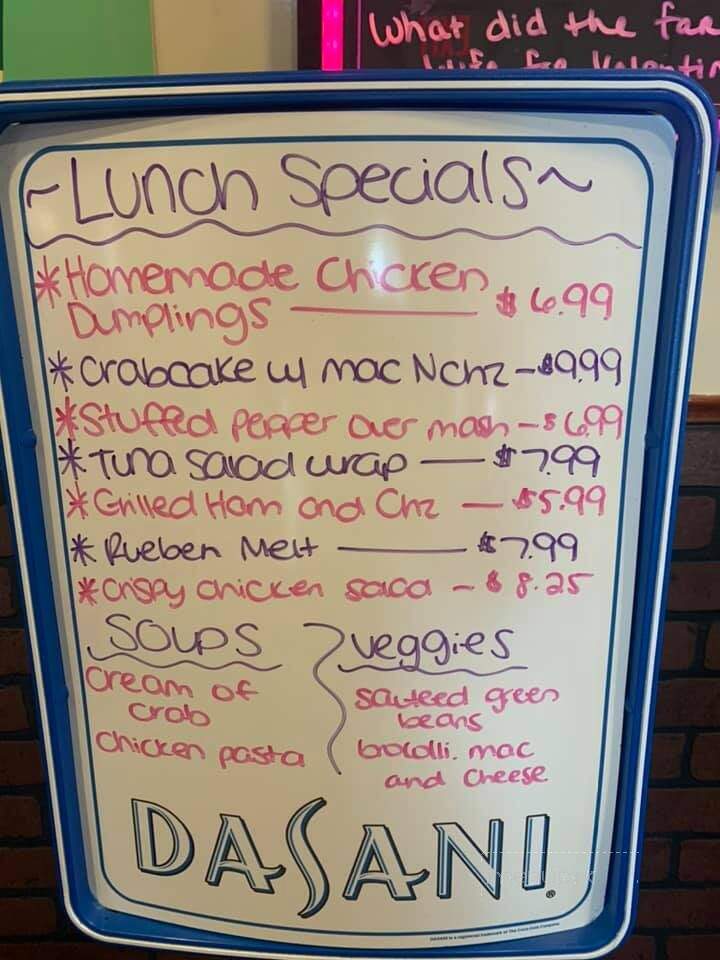 What did the
wife for Valentin
~Lunch Specials~
*Homemade Chicken
Dumplings — $6.99
*Crabcake w/ mac N chz -$9.99
*Stuffed pepper over mash -$6.99
*Tuna salad wrap — $7.99
*Grilled Ham and Chz — $5.99
*Rueben Melt — $7.99
*Crispy chicken salad - $8.25
Soups
Cream of
Crab
Chicken pasta
Veggies
sauteed green
beans
brocolli. mac
and cheese
DASANI®